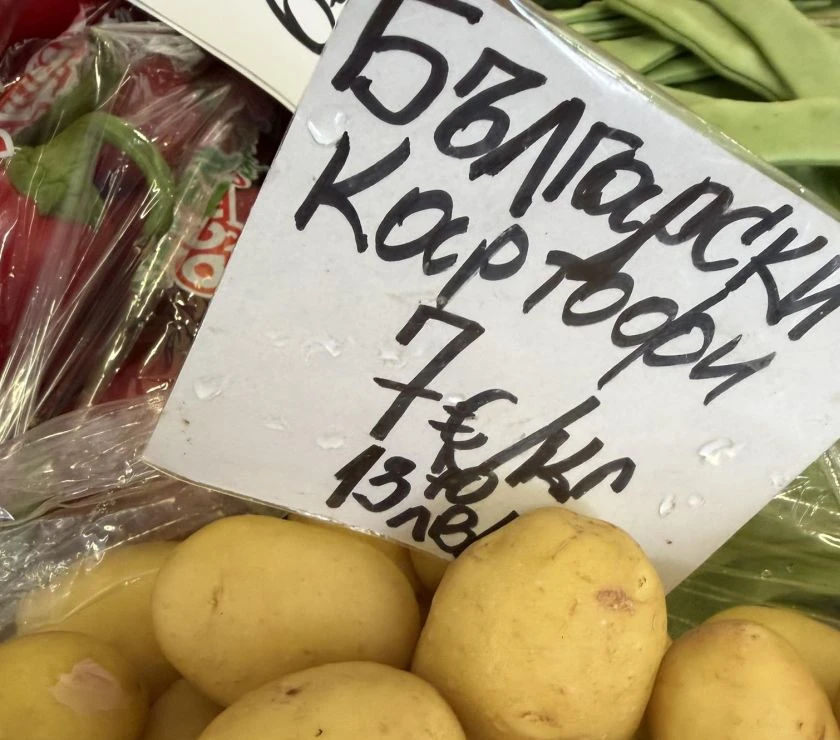 Български
Картофи
7
€/кг
13 70
лв/